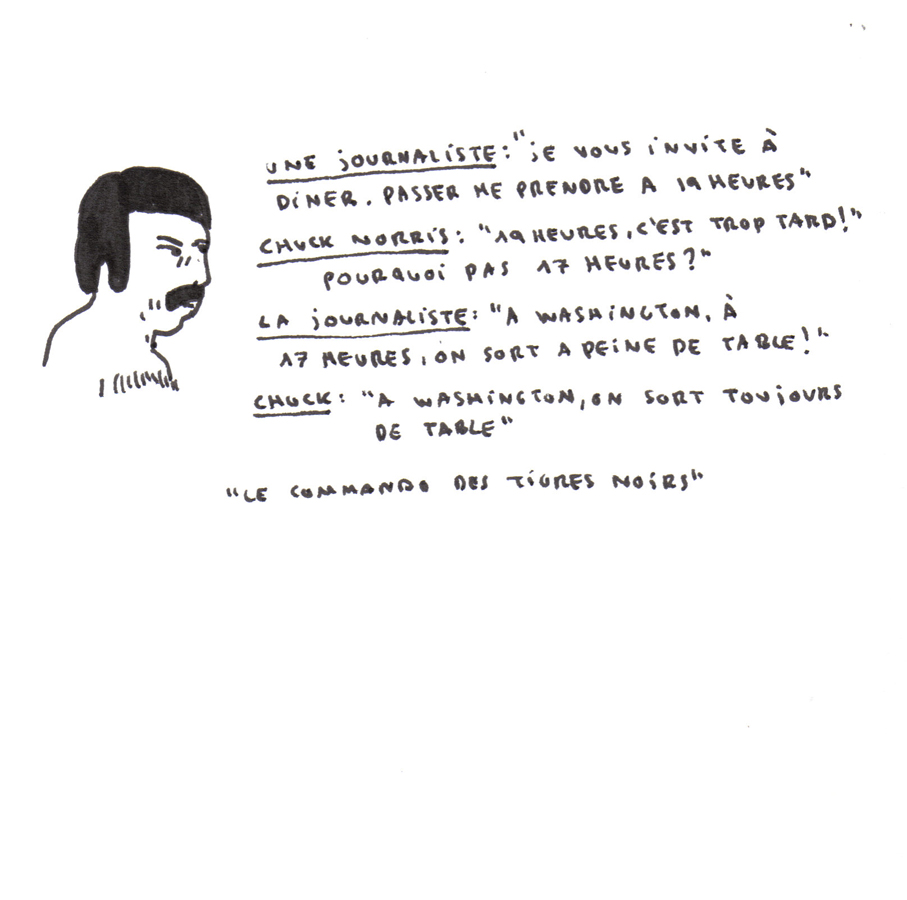 UNE JOURNALISTE: "JE VOUS INVITE À
DINER. PASSER ME PRENDRE A 19 HEURES"
CHUCK NORRIS: "19 HEURES, C'EST TROP TARD!"
POURQUOI PAS 17 HEURES?"
LA JOURNALISTE: "A WASHINGTON, À
17 HEURES, ON SORT A PEINE DE TABLE!"
CHUCK: "A WASHINGTON, ON SORT TOUJOURS
DE TABLE"
"LE COMMANDO DES TIGRES NOIRS"